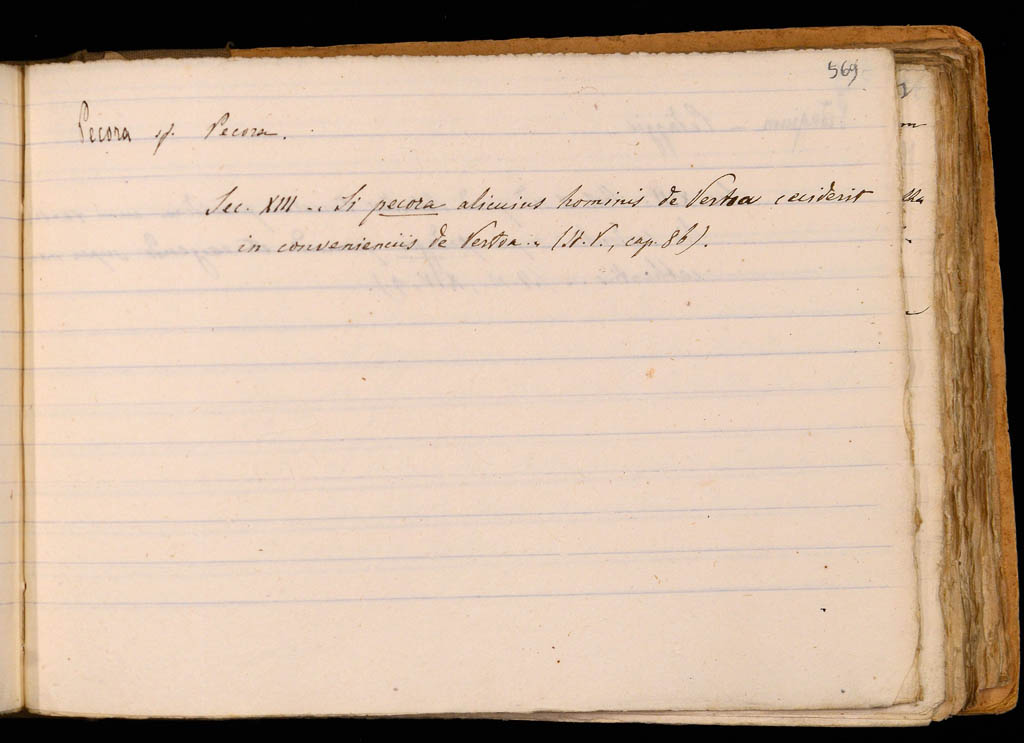 569
Pecora sf. Pecora.
Sec. XIII - Si pecora alicuius hominis de Vertoa ceciderit
in convenienciis de Vertoa. - (St. V., cap. 86).